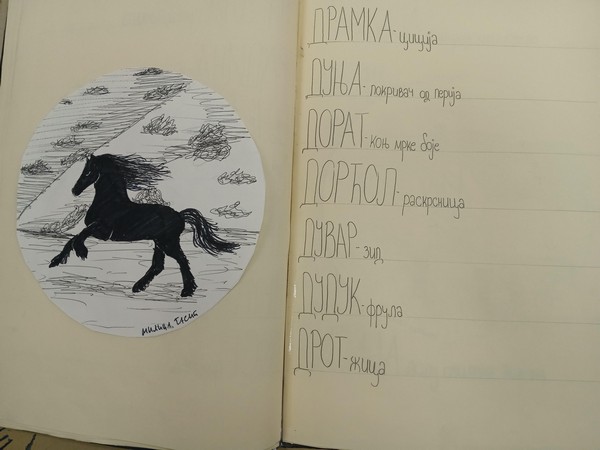 МИЛИЦА
ДРАМКА - циција
ДУЊА - покривач од перија
ДОРАТ - коњ мрке боје
ДОРЋОЛ - раскрсница
ДУВАР - зид
ДУДУК - фрула
ДРОТ - жица